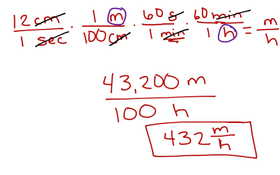 12 cm/1 sec · 1 m/100 cm · 60 s/1 min · 60 min/1 h = m/h
43,200 m
100 h
432 m/h